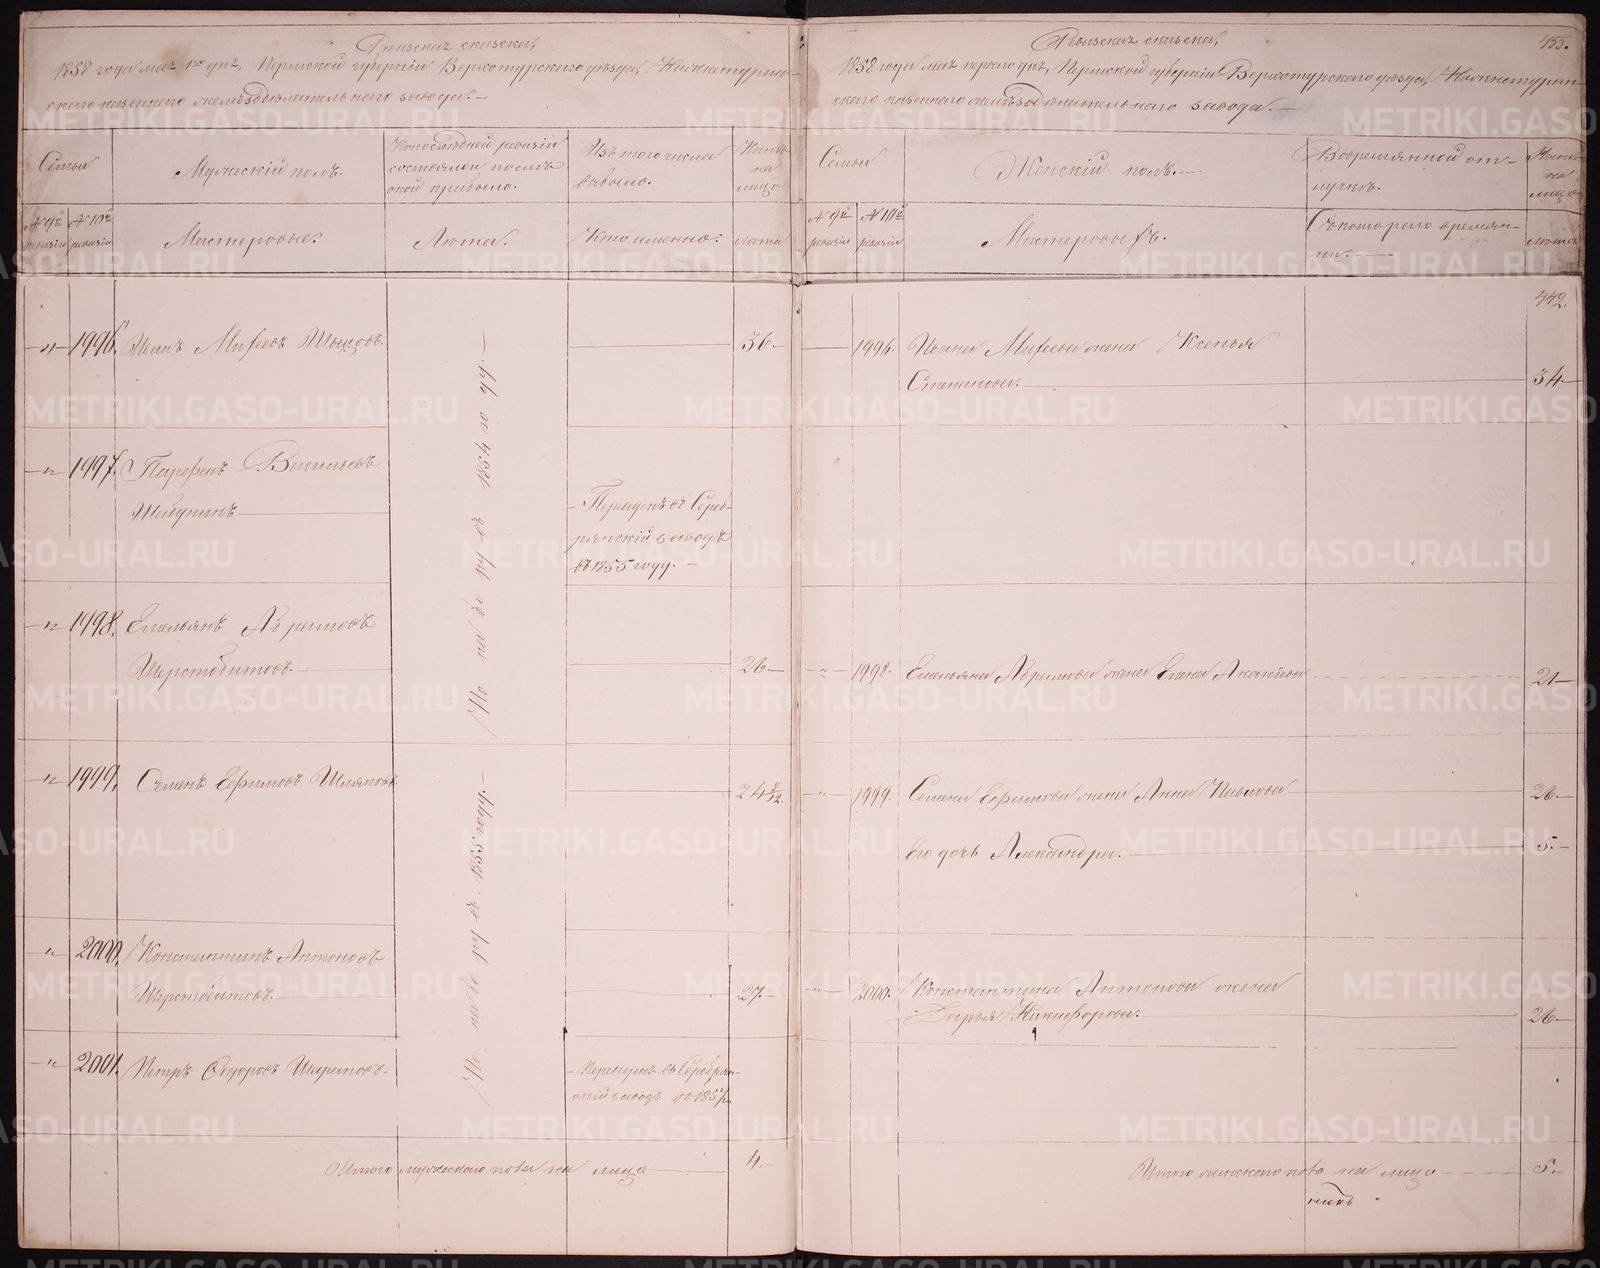 Ревизская сказка,
1858 года мая 1го дня, Пермской губерніи Верхотурского уѣзда, Нижнетурин-
ского казеннаго желѣзодѣлательнаго завода.—
Семьи
Мужескій полъ.
По послѣдней ревизіи
состояло и послѣ
оной прибыло.
Изъ того числа
выбыло.
Нынѣ
на
лицо
№ 9й
ревизіи
№ 10й
ревизіи
Мастеровые.
Лѣта.
Кто именно.
лѣта
1996. Иванъ Михеевъ 36.—
1997. Парфенъ Васильевъ
Переведенъ въ Среб-
рянскій заводъ
въ 1855 году.—
1998. Емельянъ Абрамовъ
Шерстобитовъ.— 26—
1999. Семенъ Ефимовъ Шляповъ 24 /12.
2000. Константинъ Антоновъ
Шерстобитовъ.— 27.—
2001. Петръ Ѳедоровъ
Переведенъ въ Серебрян-
скій заводъ въ 1857г.
Но наберу въ 1854 году.—
Но наберу въ 1855 году.—
Итого мужескаго пола на лицо 4.—
455.
Ревизская сказка,
1858 года мая перваго дня, Пермской губерніи Верхотурского уѣзда, Нижнетурин-
скаго казеннаго желѣзодѣлательнаго завода.—
Семьи
Женскій полъ.—
Во временной от-
лучкѣ.
Нынѣ
на
лицо
№ 9й
ревизіи
№ 10й
ревизіи
Мастеровыхъ.
Съ котораго времян-
ни.—
лѣта
442.
1996. Ивана Михеева жена Ксенья
Степанова.— 34—
1998. Емельяна Абрамова жена Елена Акакіева 21—
1999. Семена Ефимова жена Анна Павлова 26.—
его дочь Александра.— 5.—
2000. Константина Антонова жена
Дарья Никифорова.— 26—
Итого женскаго пола на лицо 5.—
METRIKI.GASO-URAL.RU